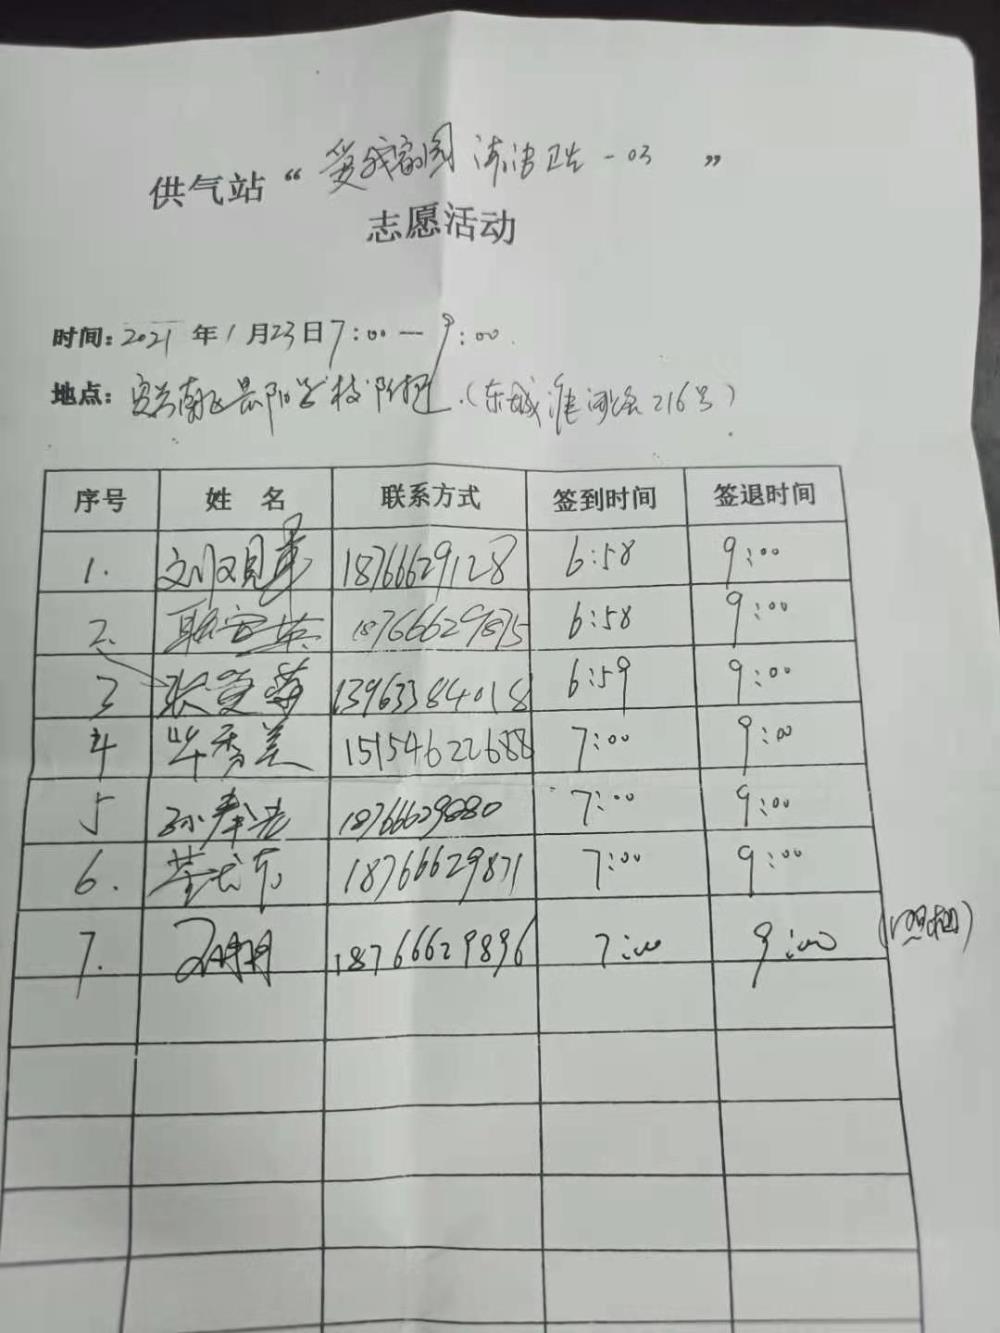 供气站“爱我家园 清洁卫生-03”
志愿活动
时间:2021年1月23日7:00—9:00.
地点: 景阳学校 (东城淮河路216号)
序号 姓 名 联系方式 签到时间 签退时间
1. 18766629128 6:58 9:00
2. 18766629875 6:58 9:00
3 张爱萍 13963384018 6:59 9:00
4 毕秀美 15154622688 7:00 9:00
5 18766629880 7:00 9:00
6. 18766629871 7:00 9:00
7. 18766629896 7:00 9:00 (照相)